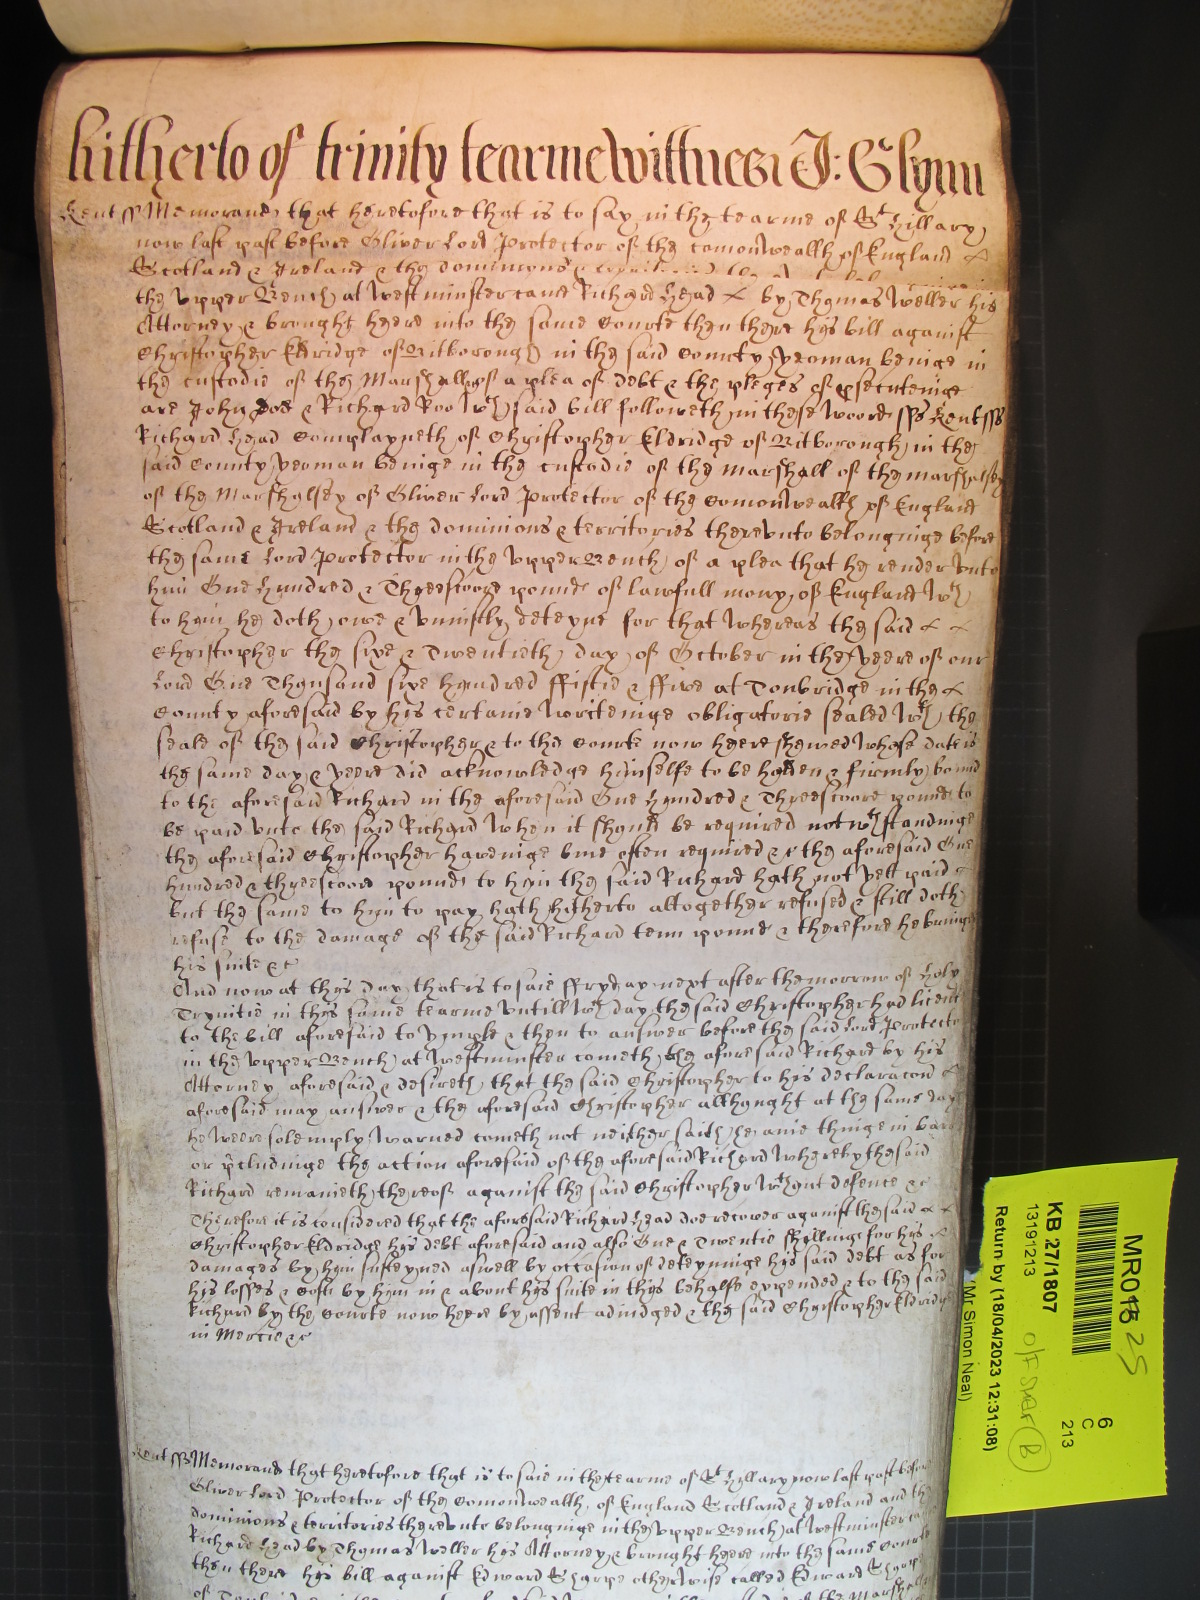 hitherto of trinity tearme wittness J: Glynn
Kent ss Memorand that heretofore that is to say in the tearme of St Hillary
now last past before Oliver Lord Protector of the comonwealth of England
Scotland & Ireland & the dominions &
the upper Bench at Westminster came Richard Head by Thomas Weller his
Attorney & brought heere into the same Courte then there his bill against
Christopher Eldridge of Bitborough in the said County Yeoman beinge in
the custodie of the Marshall of a plea of debt & the pleges of psecuteinge
are John Doe & Richard Roo wch said bill followeth in these woords ss Kent ss
Richard Head Complayneth of Christopher Eldridge of Bitborough in the
said County Yeoman beinge in the custodie of the marshall of the marshalsey
of the Marshalsey of Oliver Lord Protector of the Comonwealth of England
Scotland & Ireland & the dominions & territories thereunto belonginge before
the same Lord Protector in the upper Bench of a plea that he render unto
him One hundred & Threescoore pounds of lawfull mony of England wch
to him he doth owe & uniustly deteyne for that whereas the said
Christopher the sixe & Twentieth day of October in the yeere of our
Lord One Thousand sixe hundred ffiftie & ffive at Tonbridge in the
County aforesaid by his certaine writeinge obligatorie sealed wth the
seale of the said Christopher & to the Courte now heere shewed whose date is
the same day & yeere did acknowledge himselfe to be holden & firmly bound
to the aforesaid Richard in the aforesaid One hundred & Threescoore pounds to
be paid unto the said Richard when it should be required notwthstandinge
the aforesaid Christopher haveinge bine often required &c the aforesaid One
hundred & threescoore pounds to him the said Richard hath not yett paid
but the same to him to pay hath hitherto altogether refused & still doth
refuse to the damage of the said Richard tenn pounds & therefore he bringe
his suite &c
And now at this day that is to saie ffryday next after the morrow of Holy
Trynitie in this same tearme untill wch day the said Christopher had licence
to the bill aforesaid to ymple & then to answer before the said Lord Protector
in the upper Bench at Westminster cometh the aforesaid Richard by his
Attorney aforesaid & desireth that the said Christopher to his declaracon
aforesaid may answer & the aforesaid Christopher allthought at the same day
he weere solemply warned cometh not neither saith he anie thinge in barr
or pcludinge the action aforesaid of the aforesaid Richard whereby the said
Richard remanieth thereof against the said Christopher wthout defence &c
Therefore it is considered that the aforesaid Richard Head doe recover against the said
Christopher Eldridge his debt aforesaid and also One & Twentie shillings for his
damages by him susteyned aswell by occasion of deteyninge his said debt as for
his losses & costs by him in & about his suite in this behalfe expended & to the said
Richard by the Courte now heere by assent adiudged & the said Christopher Eldridge
in Mercie &c
Kent ss Memorand that heretofore that is to saie in the tearme of St Hillary now last past before
Oliver Lord Protector of the Comonwealth of England Scotland & Ireland and the
dominions & territories thereunto belonginge in the upper Bench at Westminster came
Richard Head by Thomas Weller his Attorney & brought heere into the same Courte
then there his bill against Edward Sharpe otherwise called Edward Sharpe
of the Marshall
MR018 25
6
C
213
KB 27/1807
13191213
Return by (18/04/2023 12:31:08)
(Mr Simon Neal)
B